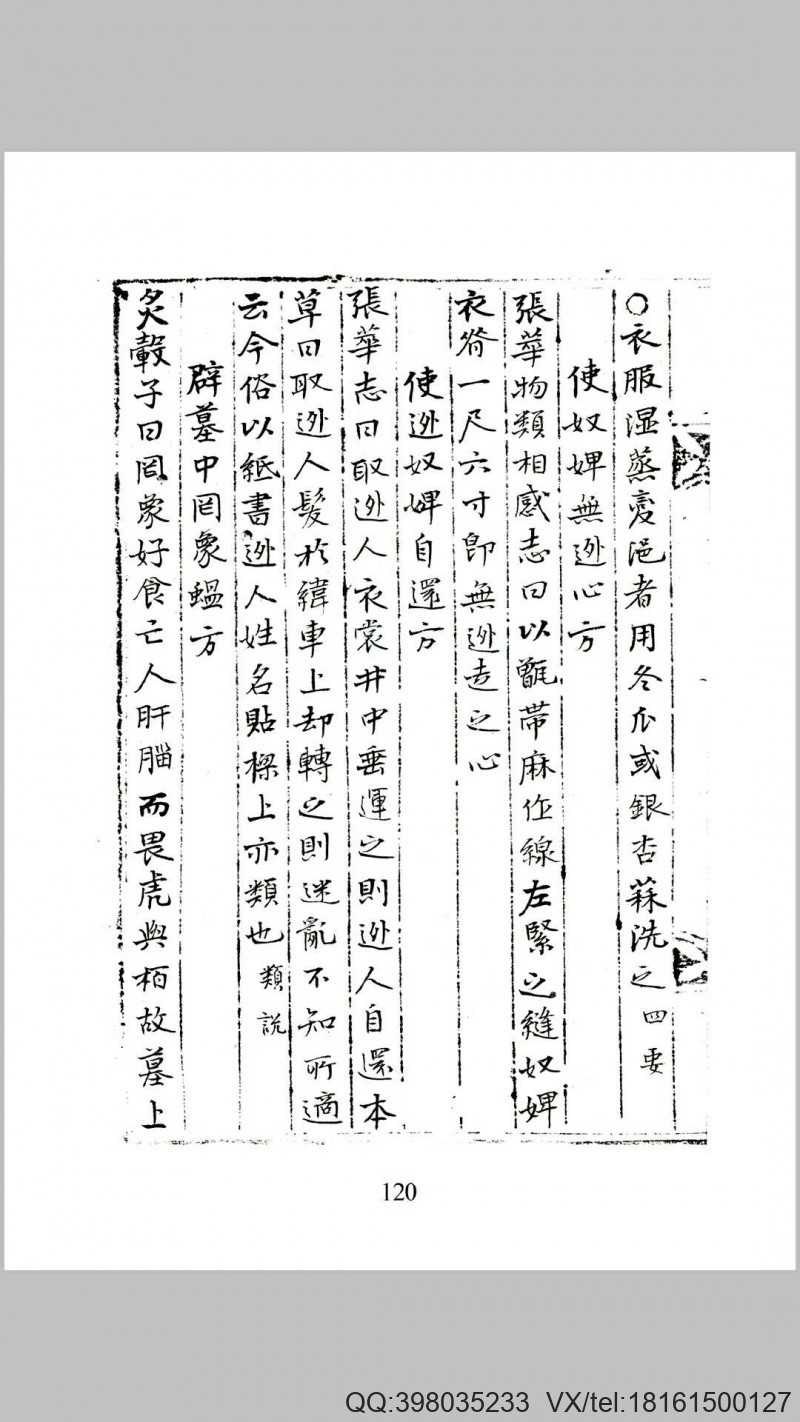 ○衣服湿蒸變浥者用冬瓜或銀杏蒜洗之四要
使奴婢無逃心方
張華物類相感志曰以甑帶麻作線左緊之縫奴婢
衣脊一尺六寸即無逃走之心
使逃奴婢自還方
張華志曰取逃人衣裳井中垂運之則逃人自還本
草曰取逃人髮於緯車上却轉之則迷亂不知所適
云今俗以紙書逃人姓名貼樑上亦類也類說
辟墓中罔象蝹方
炙轂子曰罔象好食亡人肝腦而畏虎與栢故墓上
120
QQ:398035233 VX/tel:18161500127